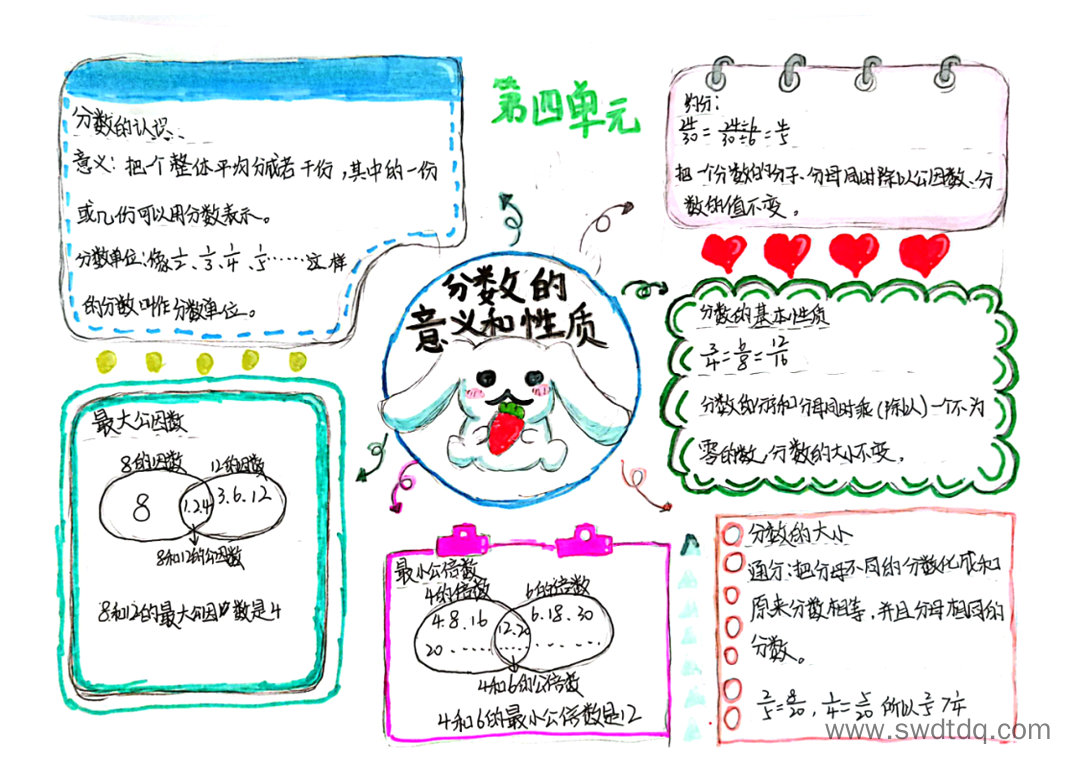 第四单元
分数的认识、
意义：把个整体平均分成若干份，其中的一份
或几份可以用分数表示。
分数单位：像1/2、1/3、1/4、1/5……这样
的分数叫作分数单位。
约分：
24/30=24÷6/30÷6=4/5
把一个分数的分子、分母同时除以公因数、分
数的值不变。
分数的
意义和性质
分数的基本性质
3/4=6/8=12/16
分数的分子和分母同时乘（除以）一个不为
零的数，分数的大小不变。
最大公因数
8的因数 12的因数
8 1.2.4 3.6.12
8和12的公因数
8和12的最大公因数是4
最小公倍数
4的倍数 6的倍数
4.8.16 12.20 6.18.30
20…… …… ……
4和6的公倍数
4和6的最小公倍数是12
分数的大小
通分：把分母不同的分数化成和
原来分数相等，并且分母相同的
分数。
2/5=8/20，1/4=5/20 所以2/5>1/4
www.swdtdq.com